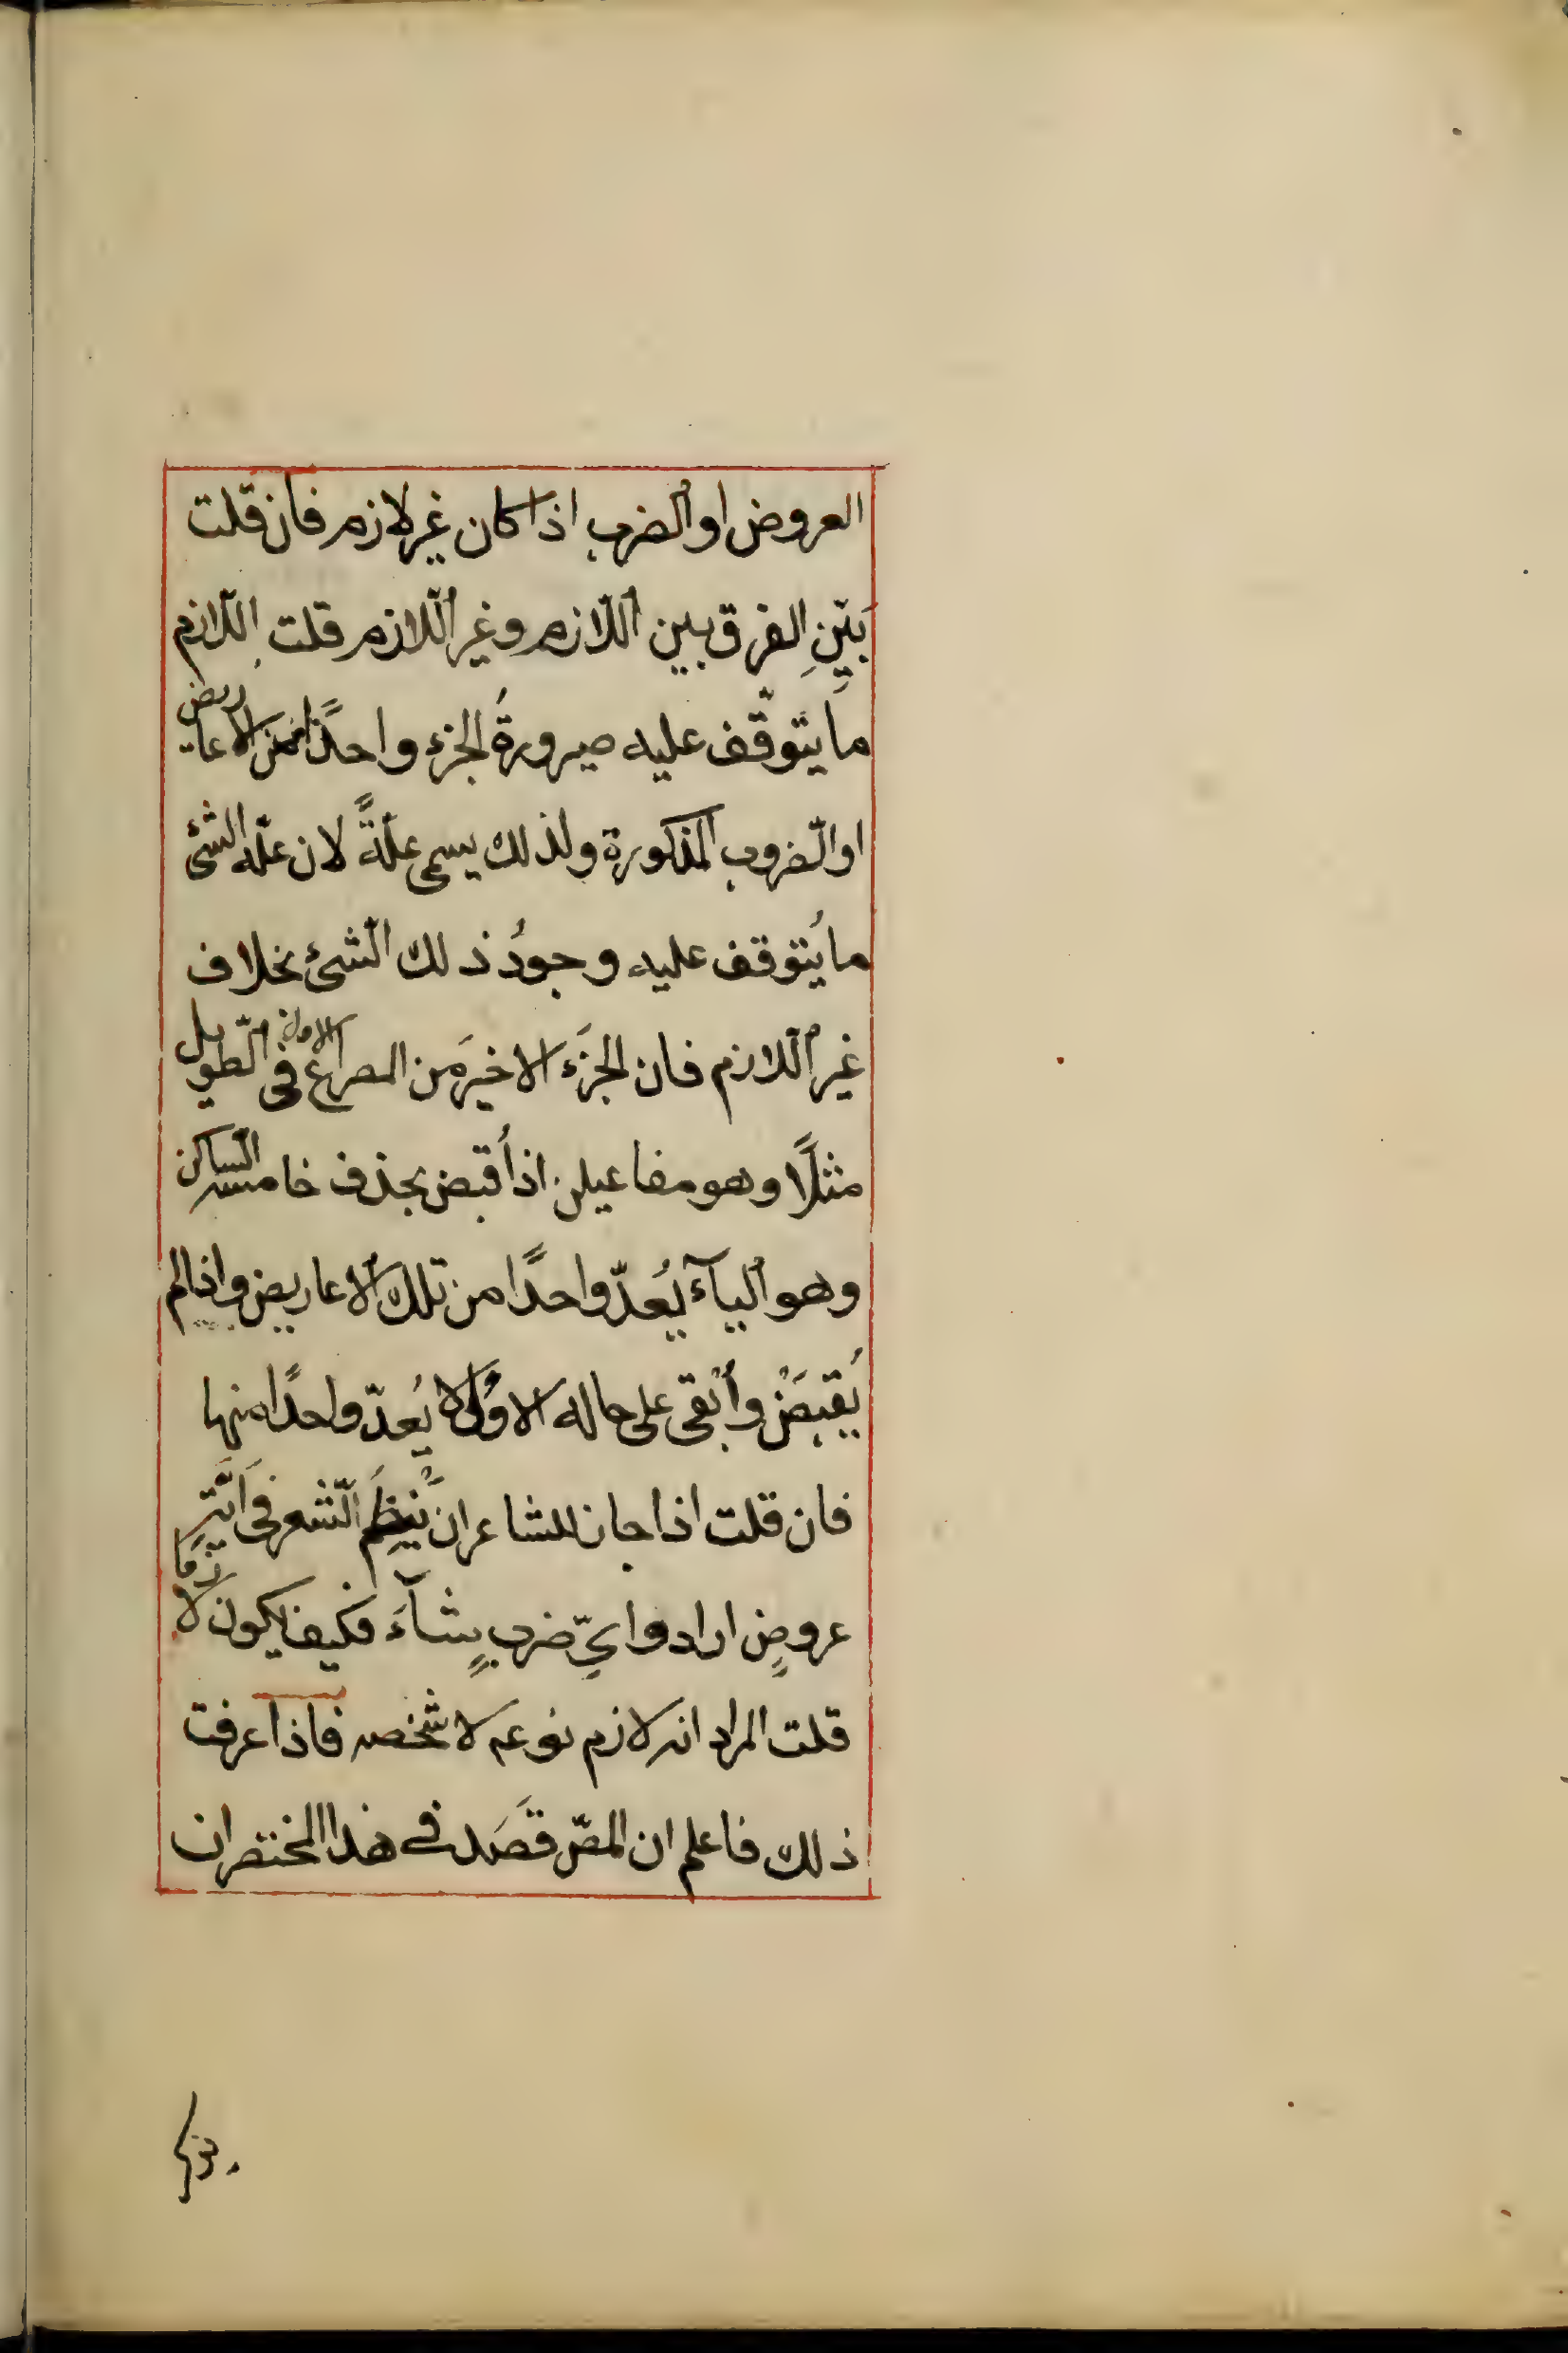 العروض او الضرب اذا كان غير لازم فان قلت
بَيِّنِ الفرق بين اللّازم وغير اللّازم قلت اللّازم
ما يتوقّف عليه صيرورةُ الجزء واحدًا من الاعاريض
او الضّروب المذكورة ولذلك يسمى علّةً لان علّة الشئ
ما يُتوقف عليه وجودُ ذلك الشئ بخلاف
غير اللّازم فان الجزَء الاخيرَ من المصراع الاول فى الطّويل
مثلًا وهو مفاعيلن اذا قبض بحذف خامسه الساكن
وهو اليآء يُعدّ واحدًا من تلك الاعاريض واذا لم
يُقبَضْ وأبْقى على حاله الاوّل لا يُعدّ واحدًا منها
فان قلت اذا جاز للشاعر ان يَنظِمَ الشّعر فى اَىِّ
عروضٍ اراد واىِّ ضربٍ شآءَ فكيف يكون لازما
قلت المراد انه لازم نوعه لا شخصه فاذا عرفت
ذلك فاعلم ان المصّ قَصَد فے هذا المختصر ان